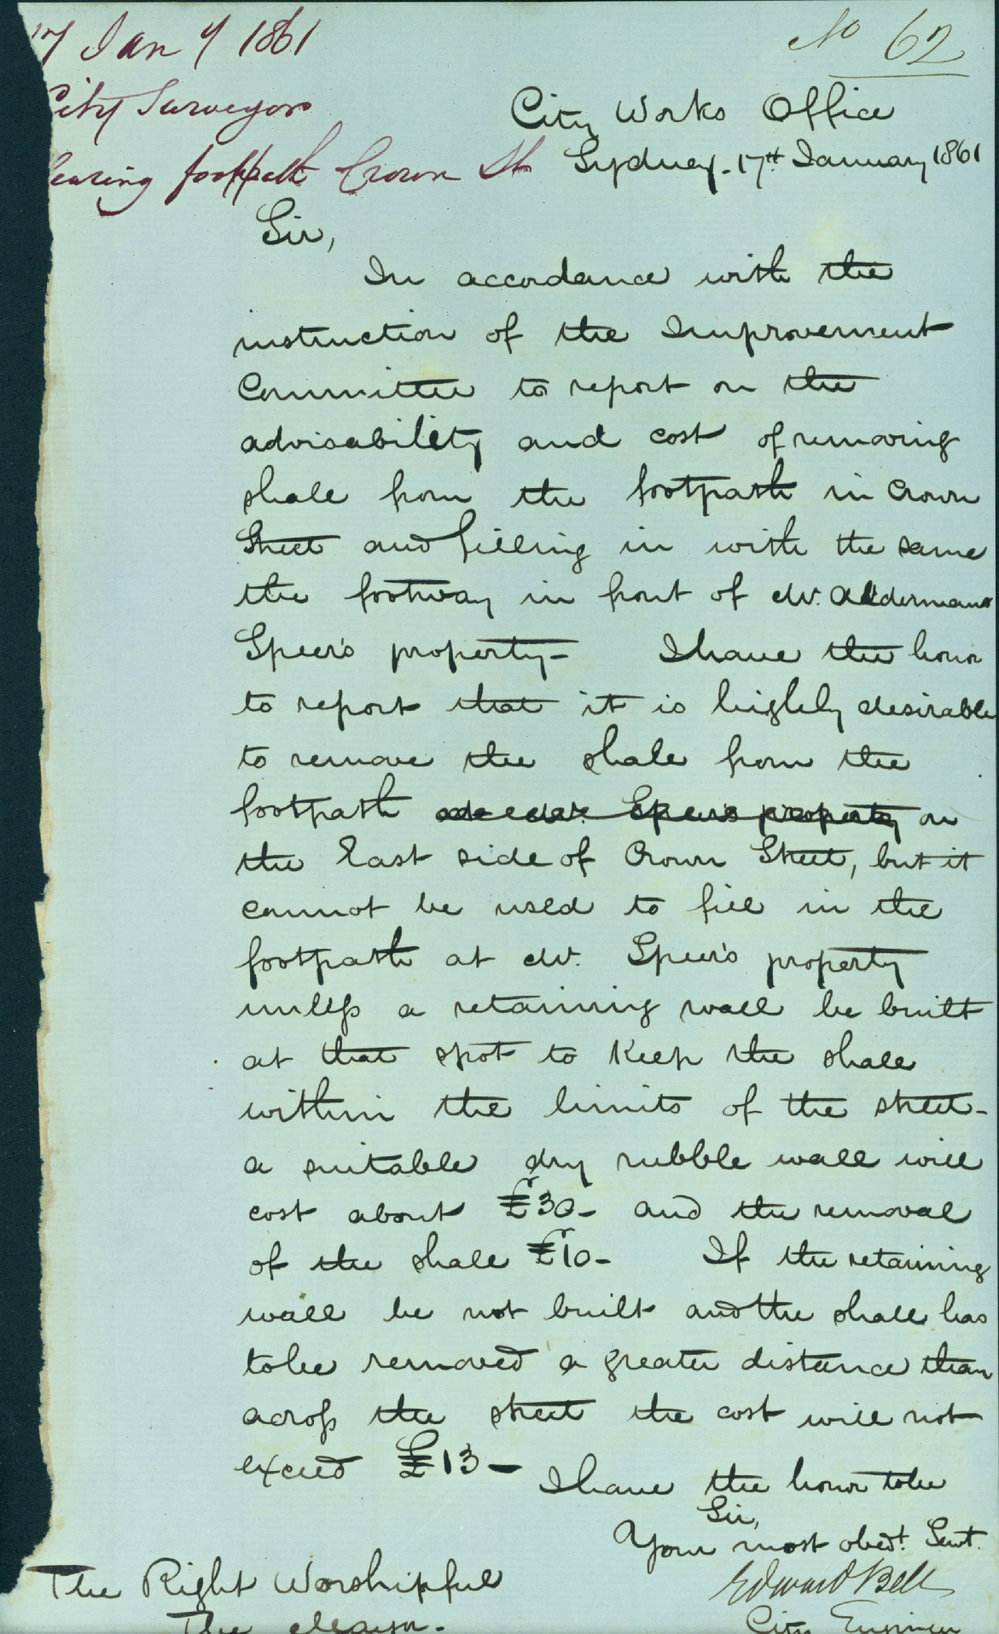 17 Jany 1861
No 62
City Surveyor
City Works Office
Clearing footpath Crown St
Sydney. 17th January 1861
Sir,
In accordance with the
instruction of the Improvement
Committee to report on the
advisability and cost of removing
shale from the footpath in Crown
Street and filling in with the same
the footway in front of Mr. Aldermans
Speer's property - I have the honor
to report that it is highly desirable
to remove the shale from the
footpath Speer's property on
the East side of Crown Street, but it
cannot be used to fill in the
footpath at Mr. Speer's property
unless a retaining wall be built
at that spot to keep the shale
within the limits of the street -
a suitable dry rubble wall will
cost about £30 - and the removal
of the shale £10 - If the retaining
wall be not built and the shale has
to be removed a greater distance than
across the street the cost will not
exceed £13 -
I have the honor to be
Sir,
Your most obedt. Servt.
Edward Bell
City Engineer
The Right Worshipful
The Mayor.